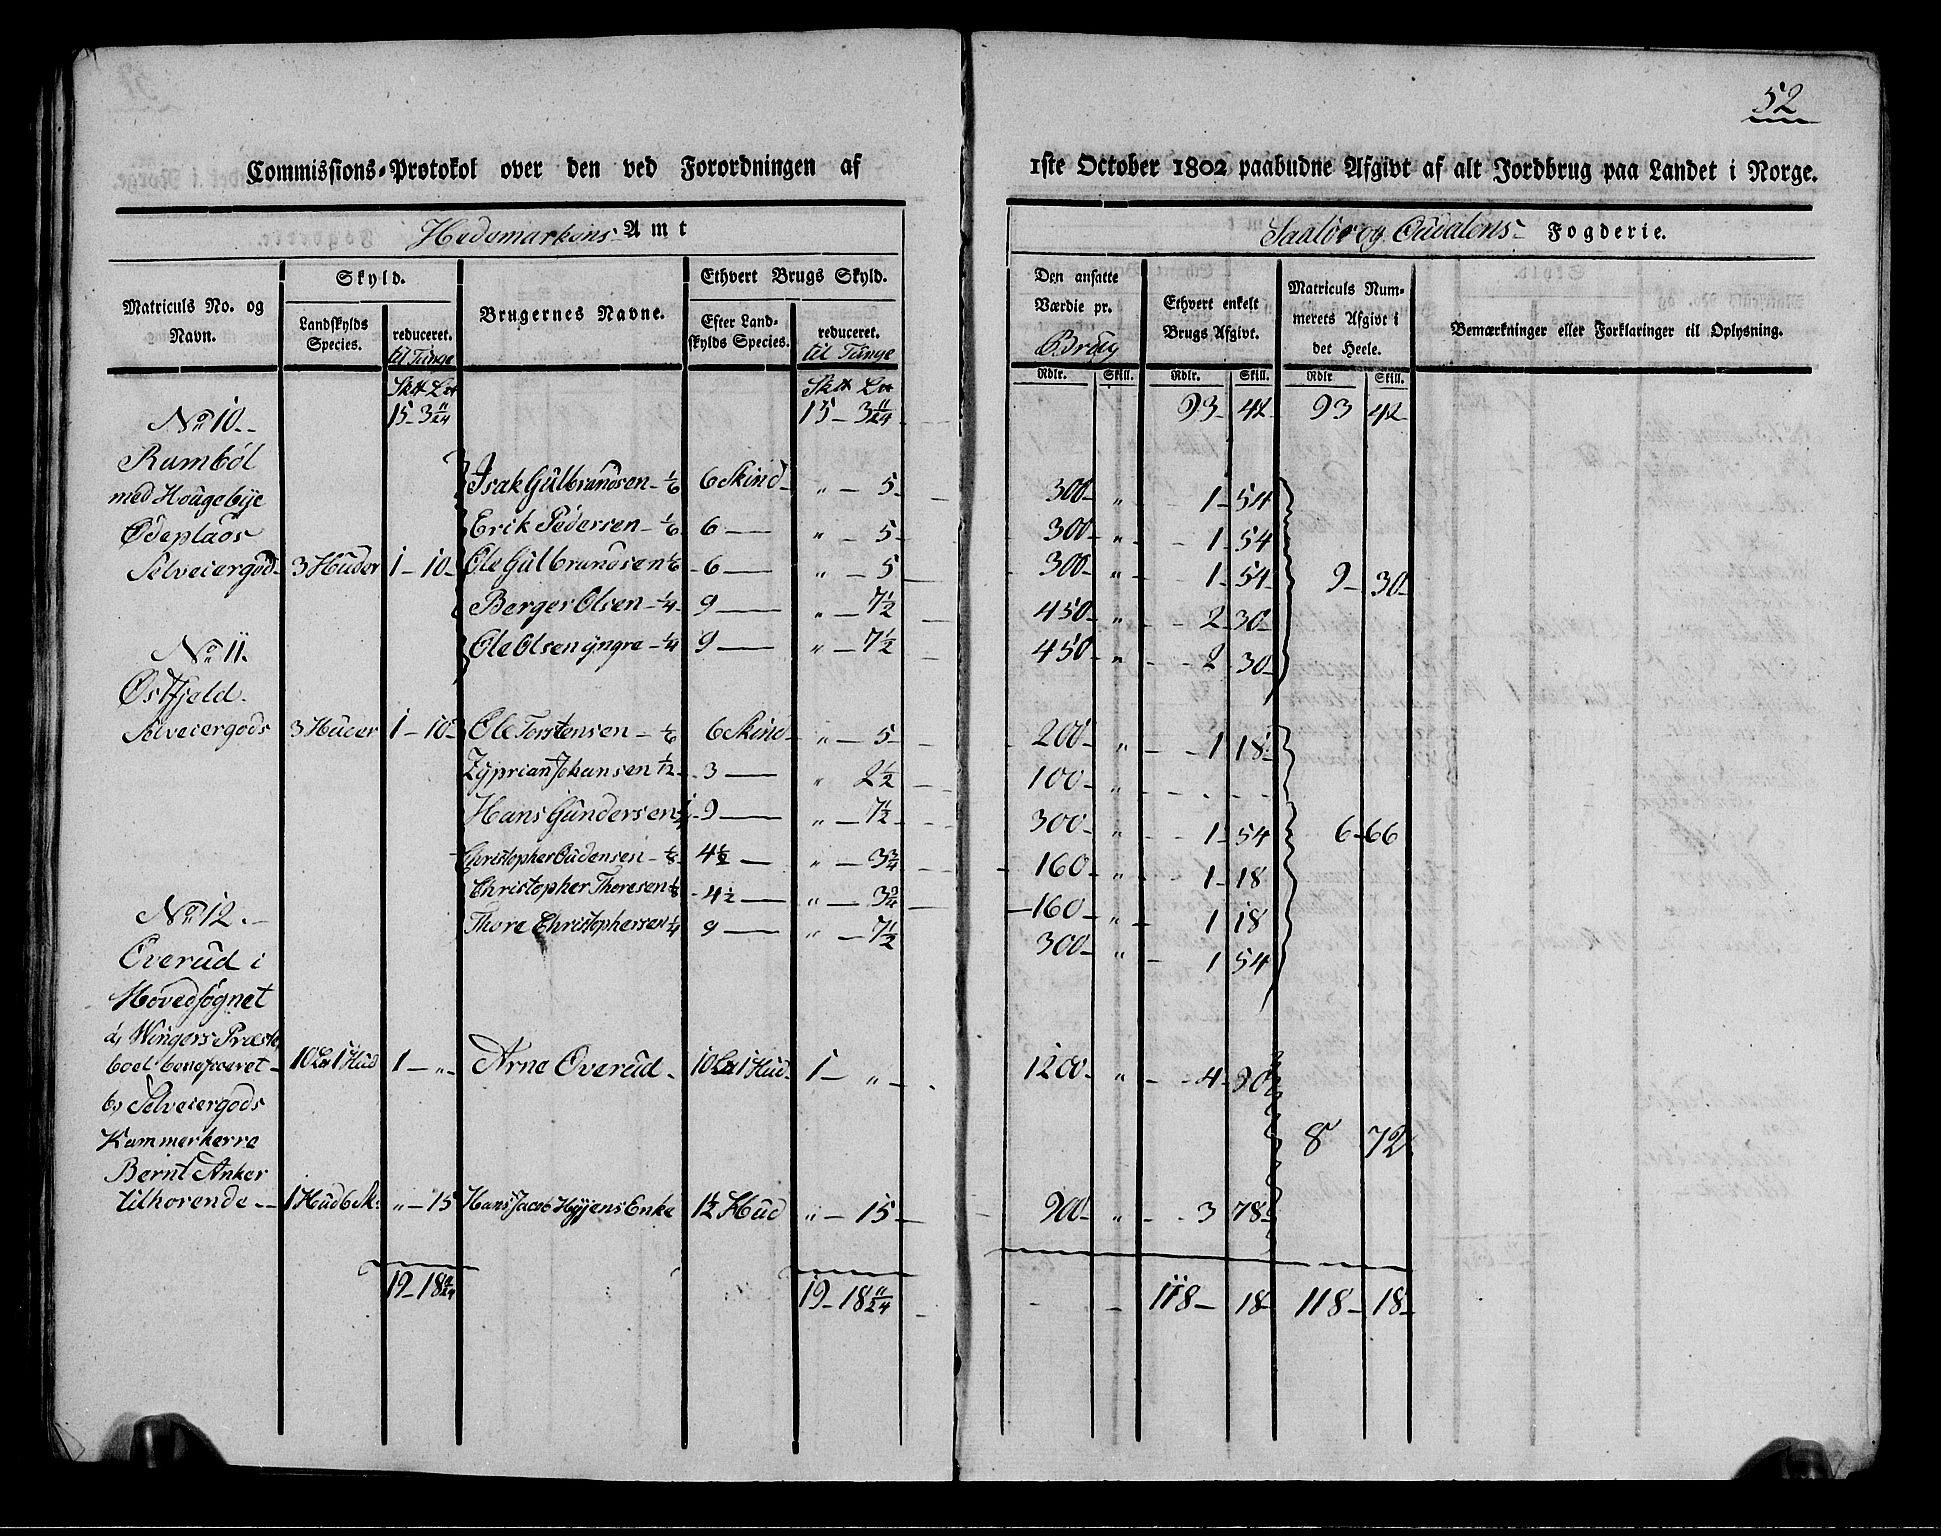 52
Commissions-Protokol over den ved Forordningen af 1ste October 1802 paabudne Afgivt af alt Jordbrug paa Landet i Norge.
Hedemarkens Amt
Saalør og Oudalens Fogderie.
Matriculs No. og Navn.
Skyld.
Landskylds Species.
reduceret. til Tunge
Brugernes Navne.
Ethvert Brugs Skyld.
Efter Landskylds Species.
reduceret. til Tunge
Den ansatte Værdie pr. Brug
Ethvert enkelt Brugs Afgivt.
Matriculs Nummerets Afgivt i det Heele.
Bemærkninger eller Forklaringer til Oplysning.
Rdlr. Skill. Rdlr. Skill. Rdlr Skill.
15-3 11/24 15-3 11/24 93-42 93 42
No 10.
Rumböl
med Hougebye
Ødeplads
Selveiergods 3 Huder 1-10-
Isak Gulbrandsen-1/6 6 Skind " - 5- 300- " 1-54
Erik Pedersen-1/6 6 — " - 5- 300- " 1-54
Ole Gulbrandsen 1/6 -6 — " - 5 300- " 1-54 9-30-
Berger Olsen-1/4- 9 — " - 7 1/2 450- " 2-30-
Ole Olsen yngre-1/4 9 — " - 7 1/2 450- " 2-30-
No 11.
Østfjeld.
Selveiergods 3 Huder 1-10-
Ole Torstensen-1/6 6 Skind " - 5- 200- " 1 18-
Zyprian Johansen 1/12 -3 — " 2 1/2 100-
Hans Gundersen 1/4 -9 — " - 7 1/2 300- " 1-54 6-66
Christopher Oudensen-1/8- 4 1/2 — " - 3 3/4 160- " 1-18
Christopher Thoresen 1/8 -4 1/2 — " - 3 3/4 160- " 1 18
Thore Christophersen 1/4 9 — " - 7 1/2 300- " 1 54
No 12.
Overud i
Hovedsognet
a, Wingers Præste
boel beneficeret 10 1 Hud 1 - " - Arne Overud - 10 1 Hud 1 - " - 1200- " - 4-90
b, Selveiergods
Kammerherre 8 72
Bernt Anker
tilhørende 1 Hud 6 Sk: " - 15 Hans Jacob Hyjens Enke 1 1/2 Hud " - 15 900- " - 3 78-
19-18 11/24 19-18 11/24 118- 18- 118-18-